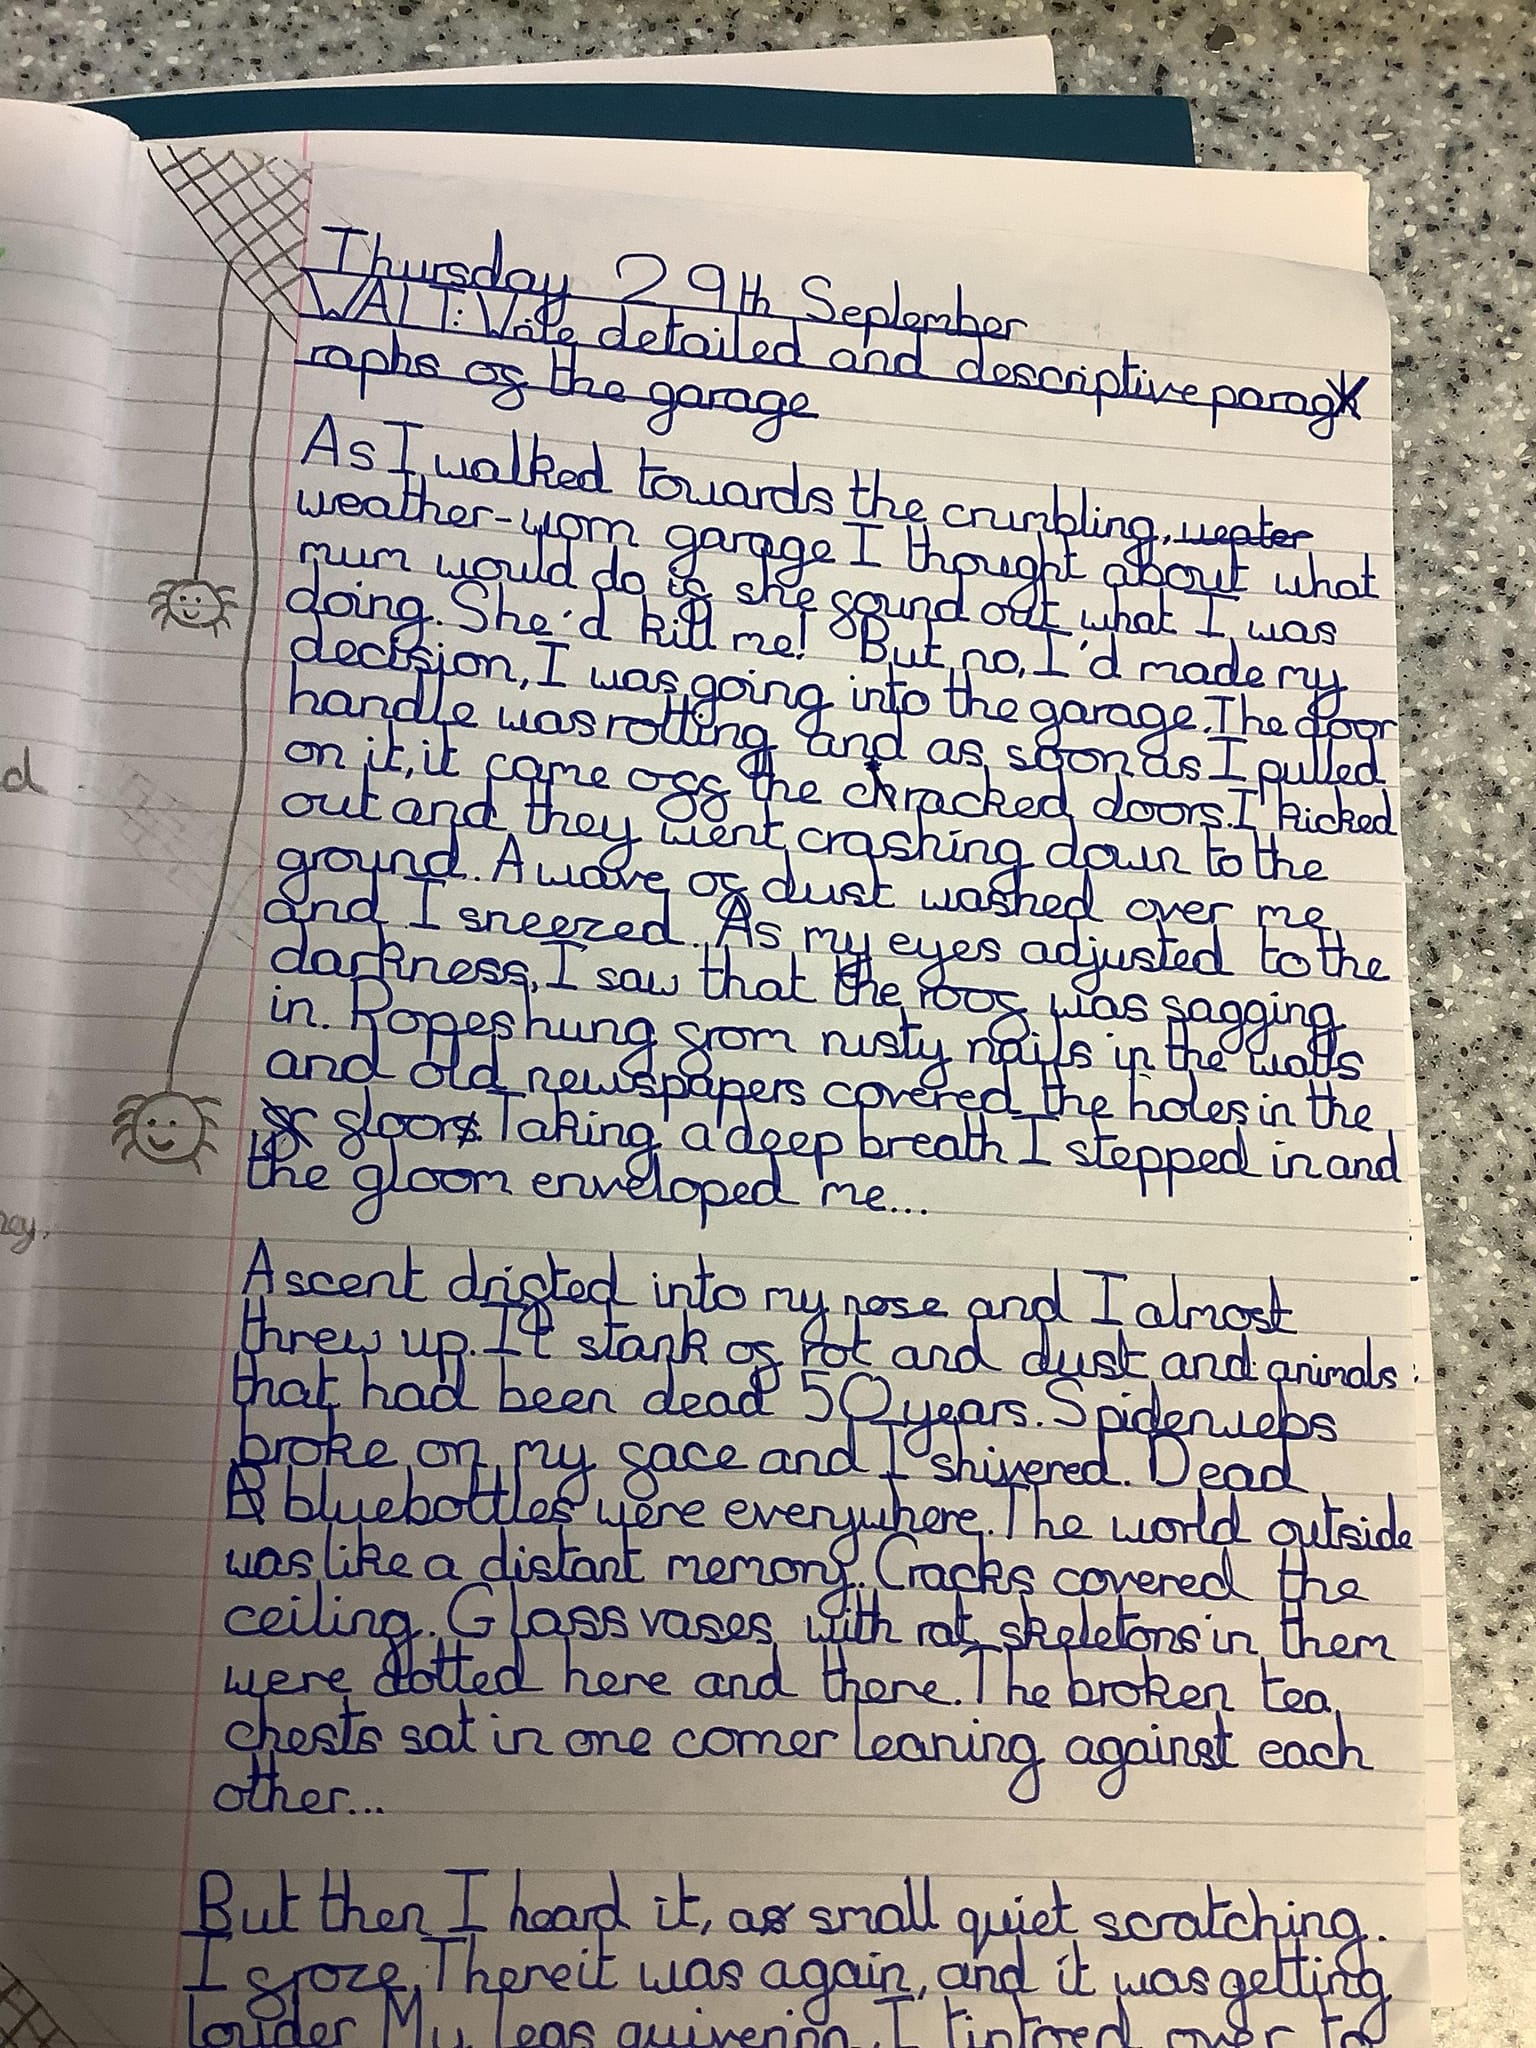 Thursday 29th September
WALT: Write detailed and descriptive parag
raphs of the garage
As I walked towards the crumbling, wepter
weather-worn garage I thought about what
mum would do if she found out what I was
doing. She'd kill me! But no, I'd made my
decision, I was going into the garage. The door
handle was rotting and as soon as I pulled
on it, it came off the cracked doors. I kicked
out and they went crashing down to the
ground. A wave of dust washed over me
and I sneezed. As my eyes adjusted to the
darkness, I saw that the roof was sagging
in. Ropes hung from rusty nails in the walls
and old newspapers covered the holes in the
floor. Taking a deep breath I stepped in and
the gloom enveloped me...
A scent drifted into my nose and I almost
threw up. It stank of rot and dust and animals
that had been dead 50 years. Spiderwebs
broke on my face and I shivered. Dead
bluebottles were everywhere. The world outside
was like a distant memory. Cracks covered the
ceiling. Glass vases with rat skeletons in them
were dotted here and there. The broken tea
chests sat in one corner leaning against each
other...
But then I heard it, a small quiet scratching.
I froze. There it was again, and it was getting
louder My legs quivering, I tiptoed over to
d
ney.